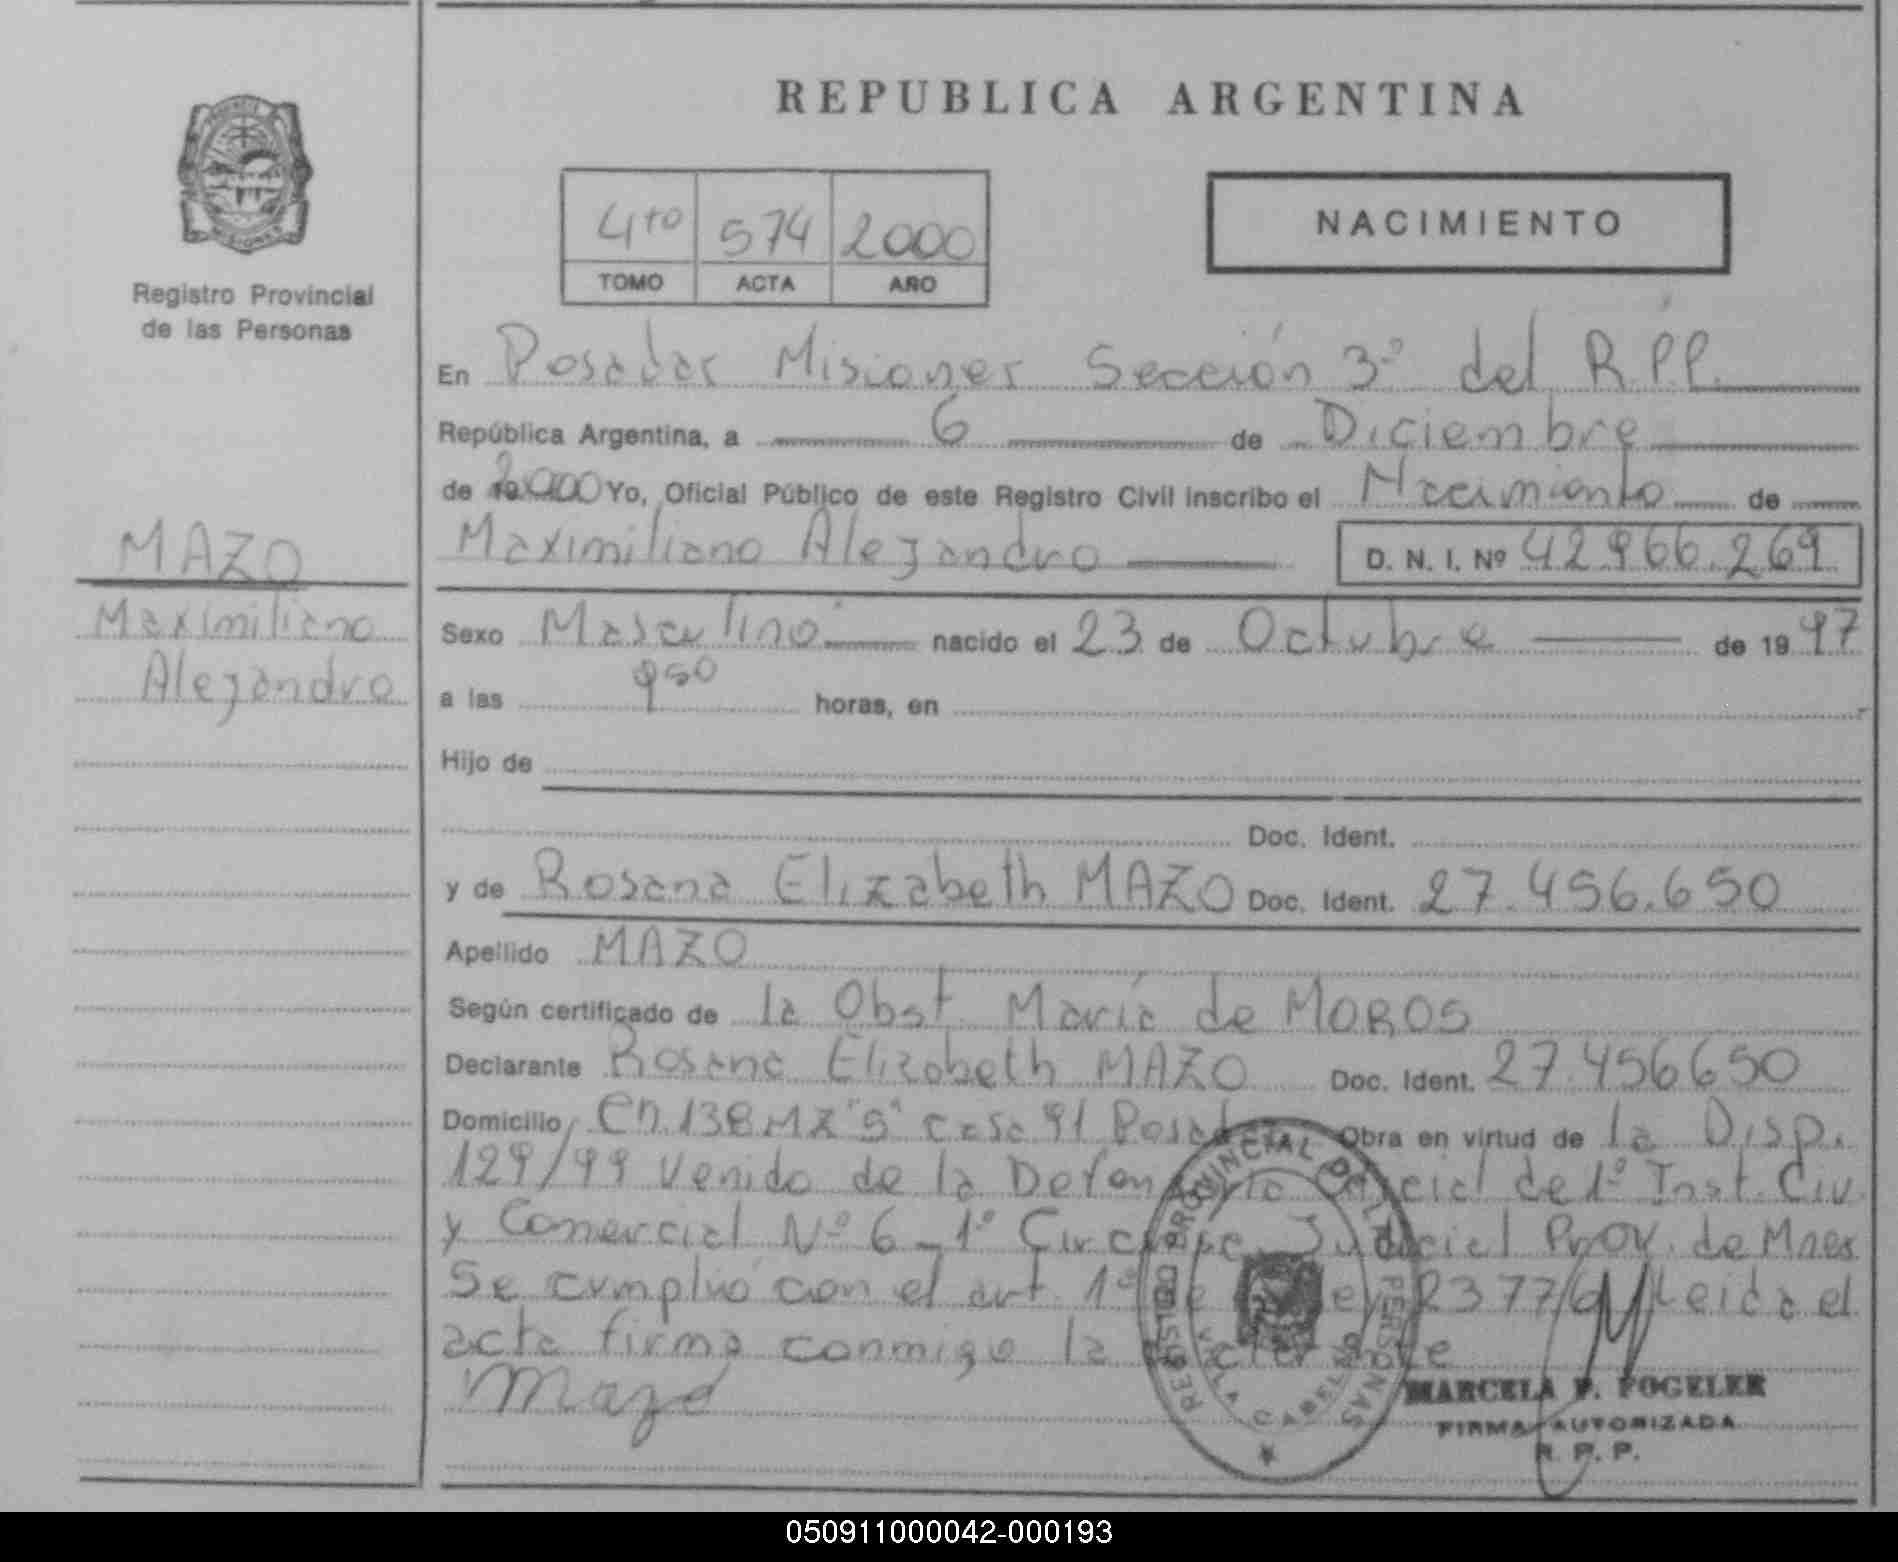 REPUBLICA ARGENTINA
4to 574 2000
TOMO ACTA AÑO
NACIMIENTO
Registro Provincial
de las Personas
En Posadas Misiones Sección 3º del R.P.P.
República Argentina, a 6 de Diciembre
de 2000 Yo, Oficial Público de este Registro Civil inscribo el Nacimiento de
Maximiliano Alejandro D. N. I. Nº 42.966.269
MAZO
Maximiliano
Alejandro
Sexo Masculino nacido el 23 de Octubre de 19 97
a las 950 horas, en
Hijo de
Doc. Ident.
y de Rosana Elizabeth MAZO Doc. Ident. 27.456.650
Apellido MAZO
Según certificado de la Obst. María de MOROS
Declarante Rosana Elizabeth MAZO Doc. Ident. 27.456650
Domicilio Ch 138 MZ "S" casa 91 Obra en virtud de la Disp.
129/99 Venido de la Defensoría Oficial de 1º Inst. Civ.
y Comercial Nº 6 - 1º Circunsc. Judicial Prov. de Mnes
Se cumplió con el art. 1º 23776 Leida el
acta firma conmigo la
Mazo
REGISTRO PROVINCIAL DE LAS PERSONAS
MARCELA F. FOGELER
FIRMA AUTORIZADA
R. P. P.
050911000042-000193